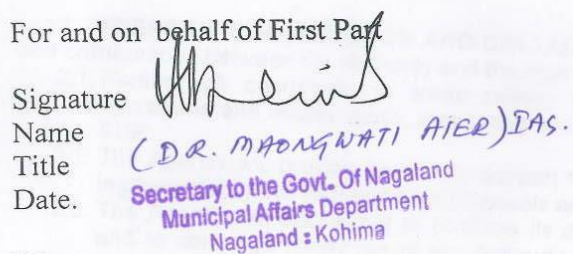 For and on behalf of First Part
Signature
Name (DR. MAONGWATI AIER) IAS.
Title
Date.
Secretary to the Govt. Of Nagaland
Municipal Affairs Department
Nagaland : Kohima